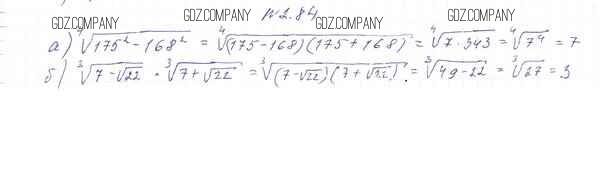 GDZ.COMPANY №2.84 GDZ.COMPANY GDZ.COMPANY
а) ⁴√(175² - 168²) = ⁴√((175-168)(175+168)) = ⁴√(7·343) = ⁴√(7⁴) = 7
б) ³√(7-√22) · ³√(7+√22) = ³√((7-√22)(7+√22)) = ³√(49-22) = ³√27 = 3